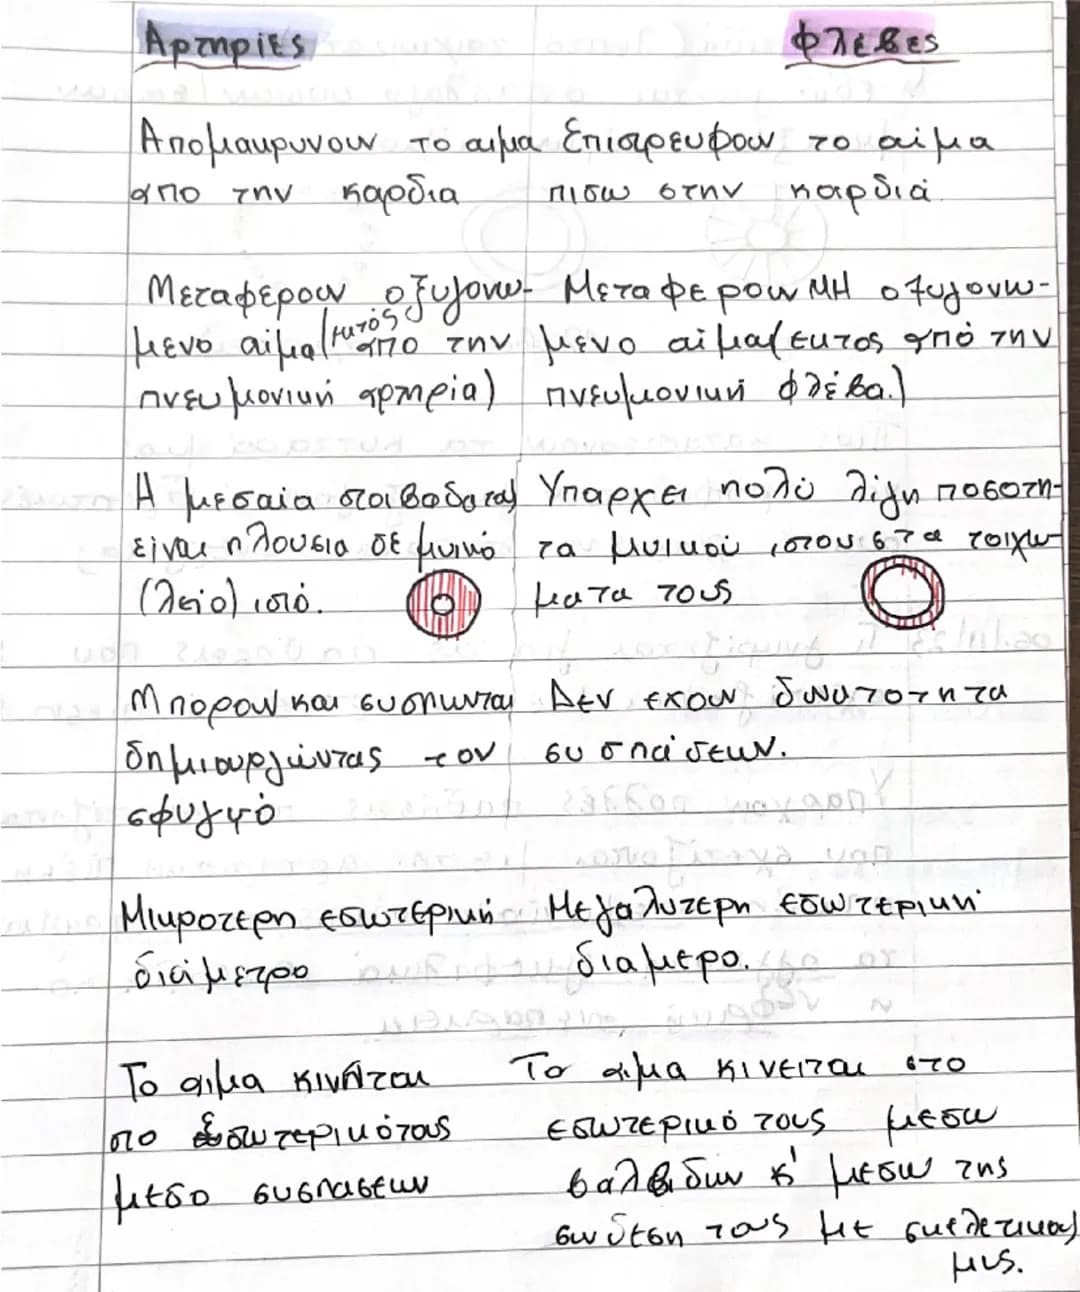 Αρτηρίες
Απομακρυνουν το αιμα
απο την καρδια
Μεταφέρουν οξυγονω-
μενο αίμα (εκτός από την
πνευμονική αρτηρία)
Η μεσαία στοιβαδα τους
είναι πλουσια σε μυικό
(λείο) ιστό.
Μπορουν και συσπωνται
δημιουργώντας τον
σφυγμό
Μικροτερη εσωτερική
διάμετρο
Το αιμα κινήται
στο εσωτερικό τους
μέσο συσπασεων
Φλεβες
Επιστρευφουν το αίμα
πισω στην καρδιά
Μεταφερουν ΜΗ οξυγονω-
μενο αίμα (εκτος από την
πνευμονικη φλέβα.)
Υπαρχει πολύ λίγη ποσοτη-
τα μυικού ιστου στα τοιχω-
ματα τους
Δεν εχουν δυνατοτητα
συσπάσεων.
Μεγαλυτερη εσωτερικη
διαμετρο.
Το αιμα κινειται στο
εσωτερικό τους μεσω
βαλβιδων κ' μεσω της
συνδεση τους με σκελετικους
μυς.